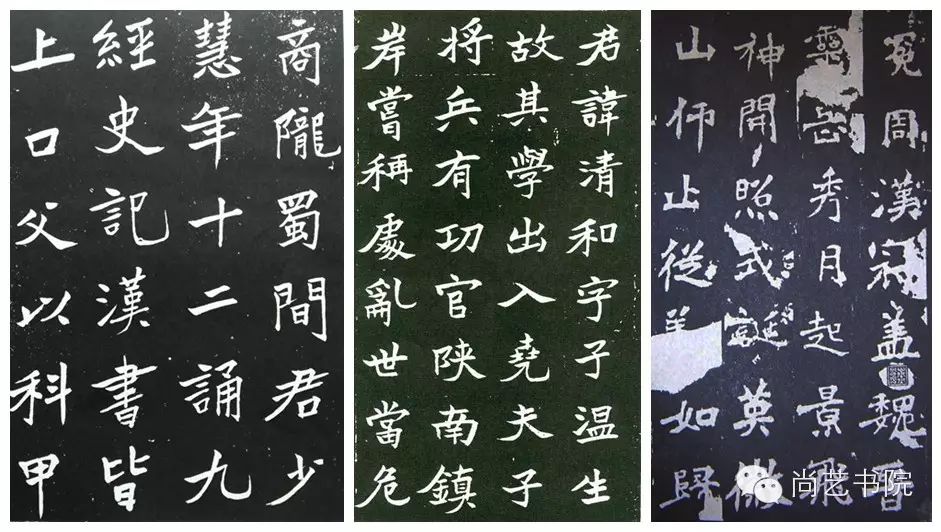 商隴蜀間君少
慧年十二誦九
經史記漢書皆
上口父以科甲
君諱清和字子温生
故其學出入堯夫子
将兵有功官陝南鎮
岸嘗稱處亂世當危
冕周漢冠盖魏晋
靈岳秀月起景飛
神開照式誕英徽
山仰止從如歸
尚艺书院